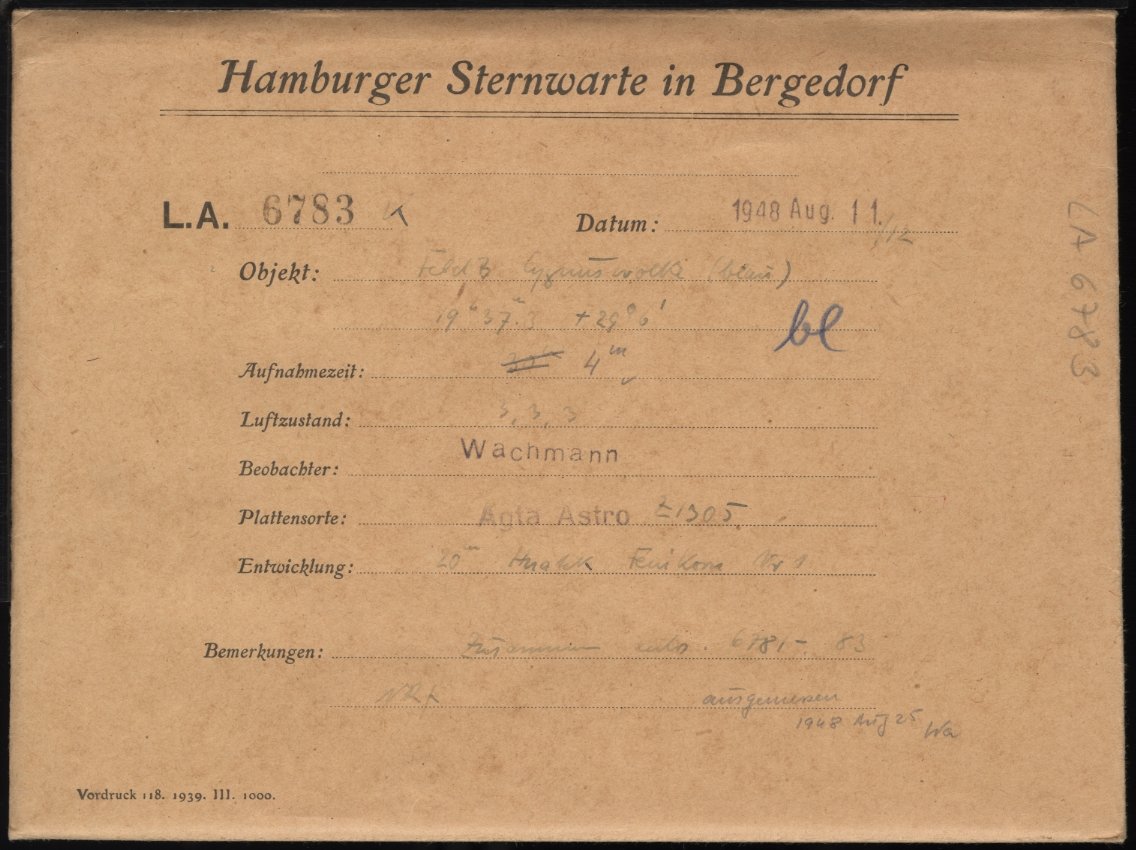 Hamburger Sternwarte in Bergedorf
L.A. 6783 K
Datum: 1948 Aug. 11./12
Objekt: Feld B Cygnuswolke (blau)
19h 37m.3 +29° 6'
bl
Aufnahmezeit: 4m
Luftzustand: 3, 3, 3
Beobachter: Wachmann
Plattensorte: Agfa Astro 1305
Entwicklung: 20m Nr 1
Bemerkungen: Zusammen 6781-83
ausgemessen
1948 Aug 25 Wa
Vordruck 118. 1939. III. 1000.
LA 6783